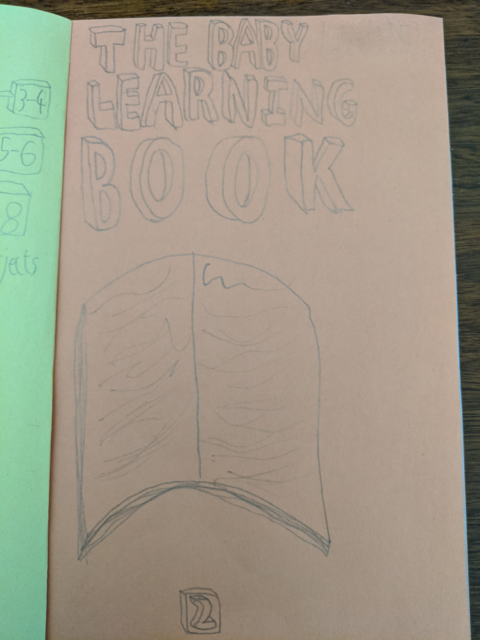 3-4
5-6
8
THE BABY
LEARNING
BOOK
2